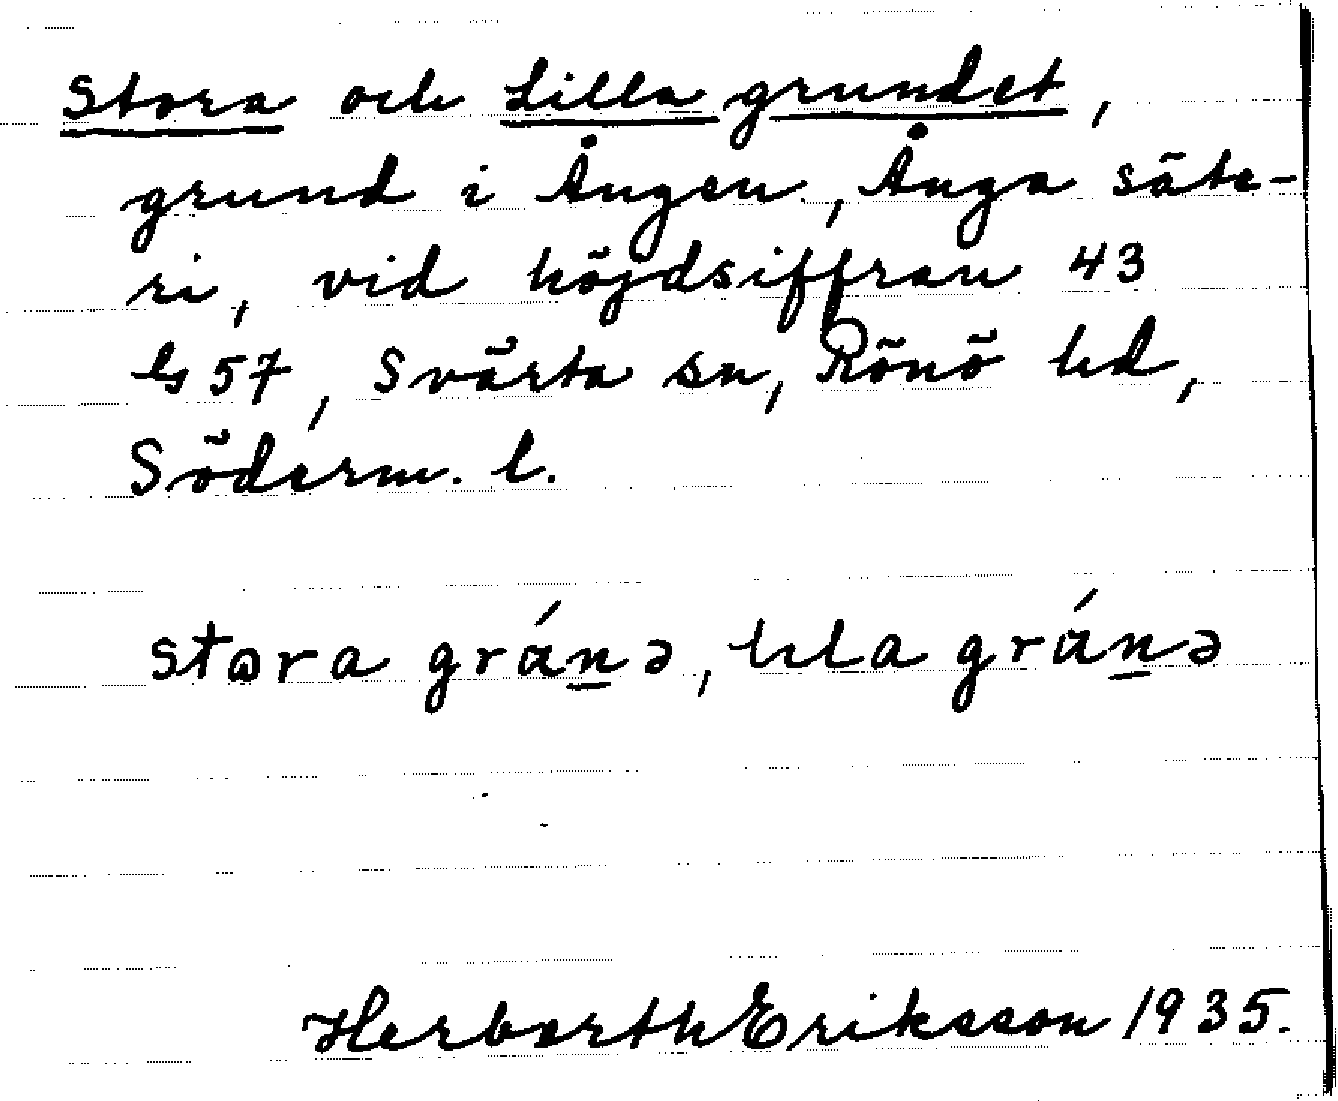 Stora och Lilla grundet,
grund i Ången, Ånga säte-
ri, vid höjdsiffran 43
b 57, Svärta sn, Rönö hd,
Söderm. l.
stɷra gránə, lıla gránə
Herbarth Eriksson 1935.